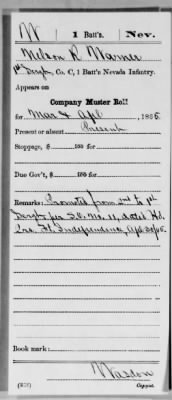 W | 1 Batt'n. | Nev.
Nelson R Warner
1st Sergt, Co. C, 1 Batt'n Nevada Infantry.
Appears on
Company Muster Roll
for Mar & Apl, 1865.
Present or absent Present
Stoppage, $ 100 for
Due Gov't, $ 100 for
Remarks: Promoted from 2nd to 1st
Sergt per S.O. No. 11, dated Hd
Qrs. Ft Independence, Apl 30/65.
Book mark:
(858) Copyist.